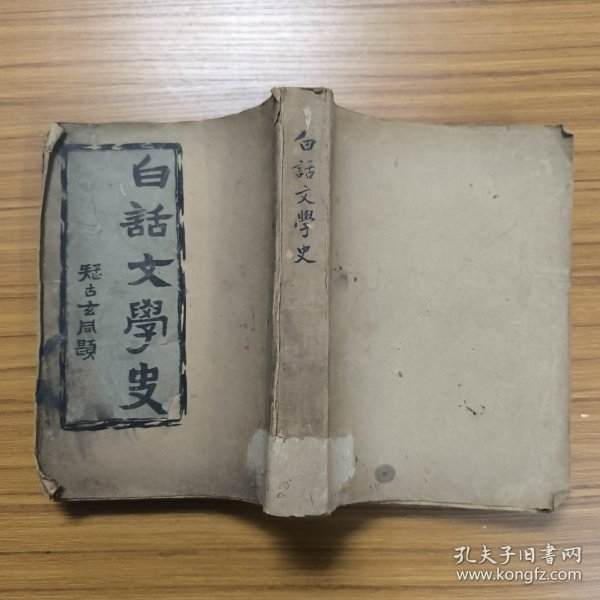 白話文學史
疑古玄同題
白話文學史
孔夫子旧书网
www.kongfz.com